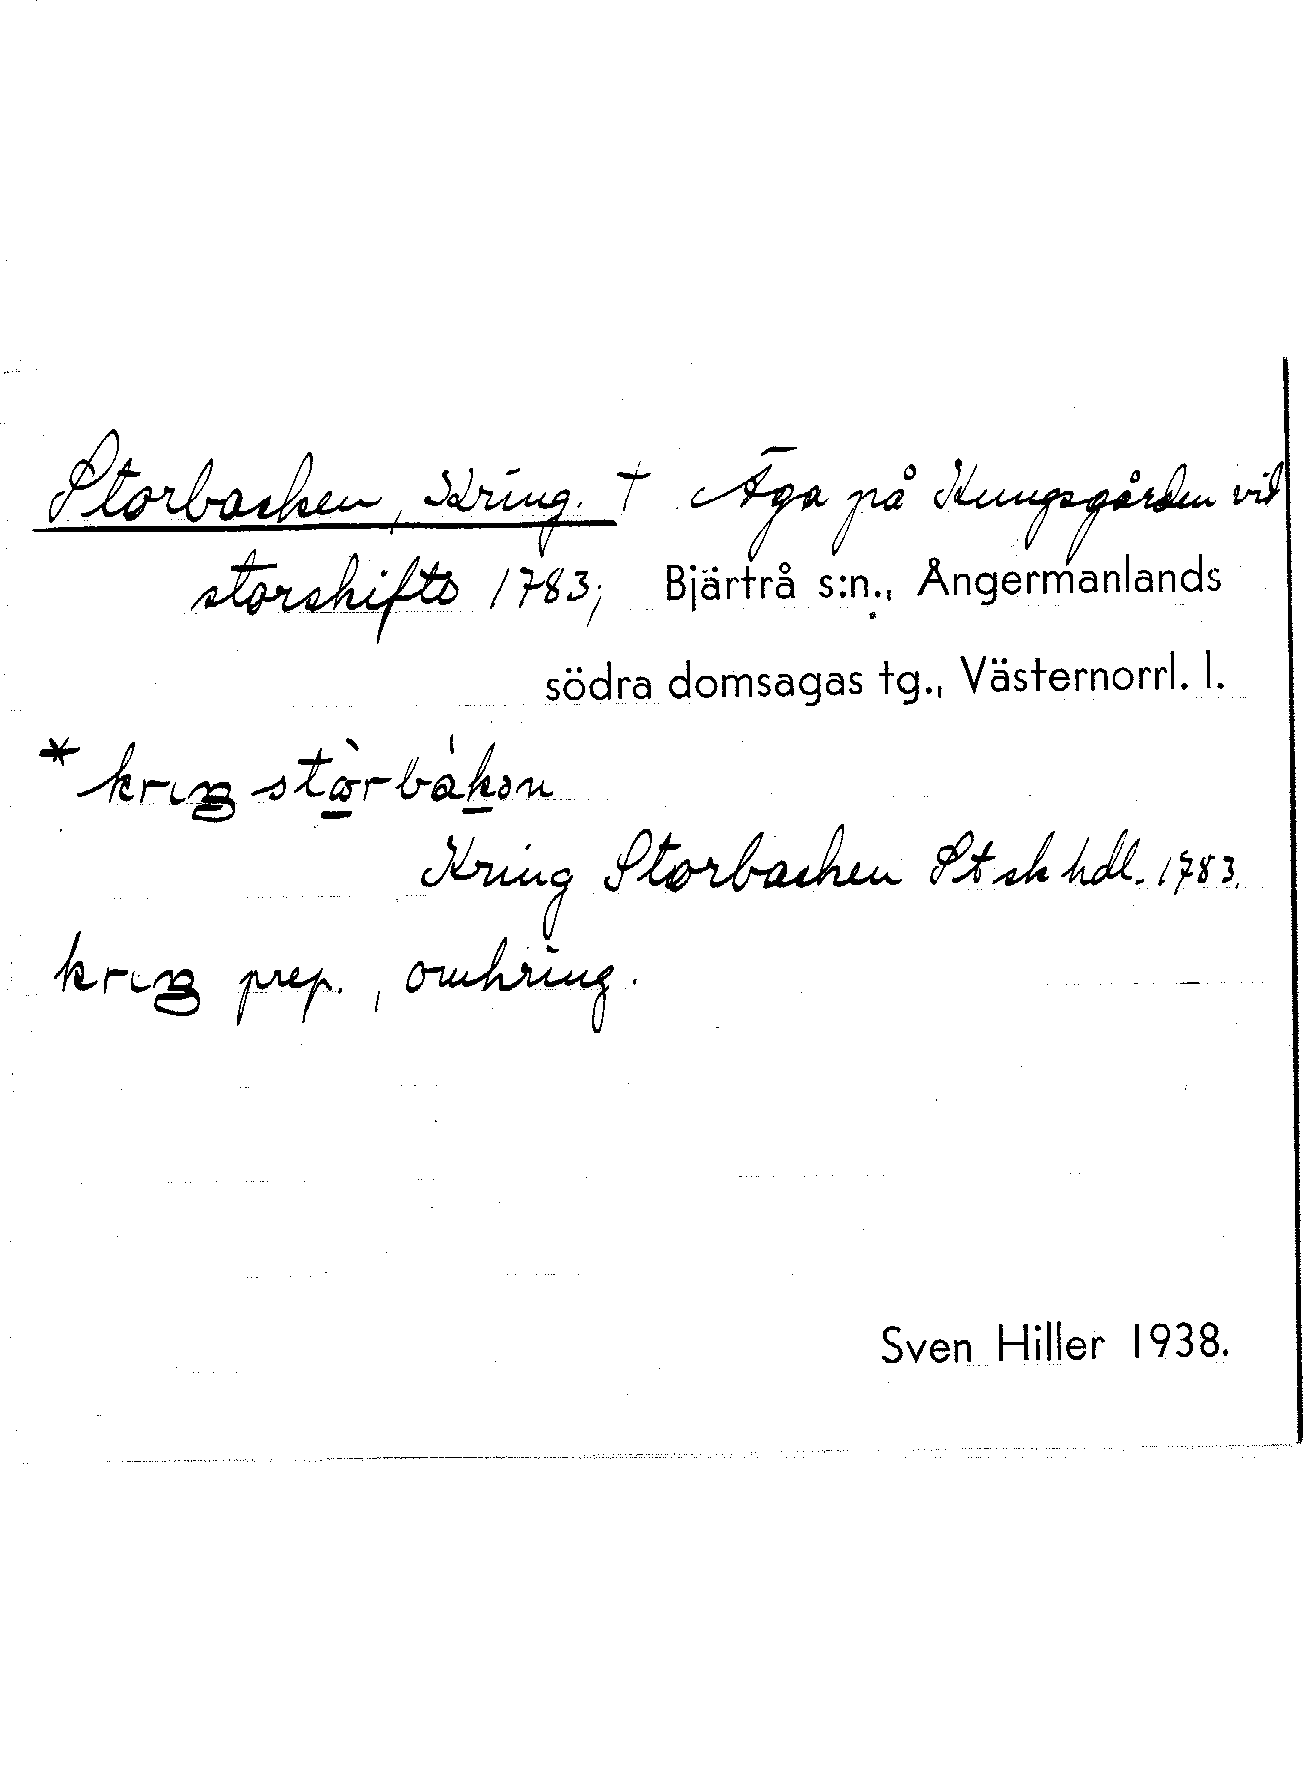 Storbacken, Kring. † Äga på Kungsgården vid
storskifte 1783; Bjärtrå s:n., Ångermanlands
södra domsagas tg., Västernorrl. l.
* krıŋ stòrbákən
Kring Storbacken Stskhdl. 1783.
krıŋ prep., omkring.
Sven Hiller 1938.